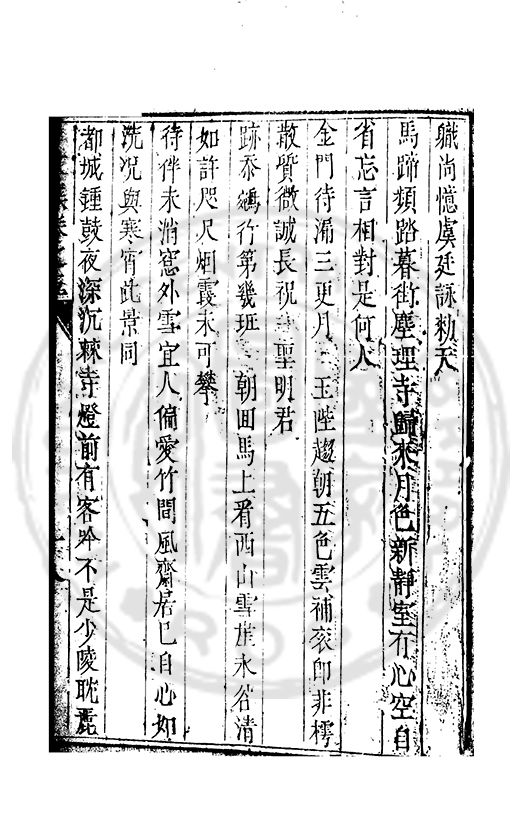 職尚憶虞廷詠勑天
馬蹄頻踏暮街塵理寺歸來月色新靜室冇心空自
省忘言相對是何人
金門待漏三更月 玉陛趨朝五色雲補衮卽非樗
散質微誠長祝 聖明君
跡忝鵷行第幾班 朝回馬上看西山雪崖氷谷清
如許咫尺烟霞未可攀
待伴未消窓外雪宜人偏愛竹間風齋居已自心如
洗况與寒宵此景同
都城鍾鼓夜深沉棘寺燈前有客吟不是少陵耽麗